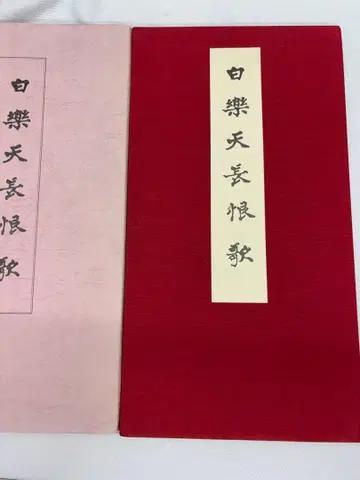 白樂天長恨歌
白樂天長恨歌